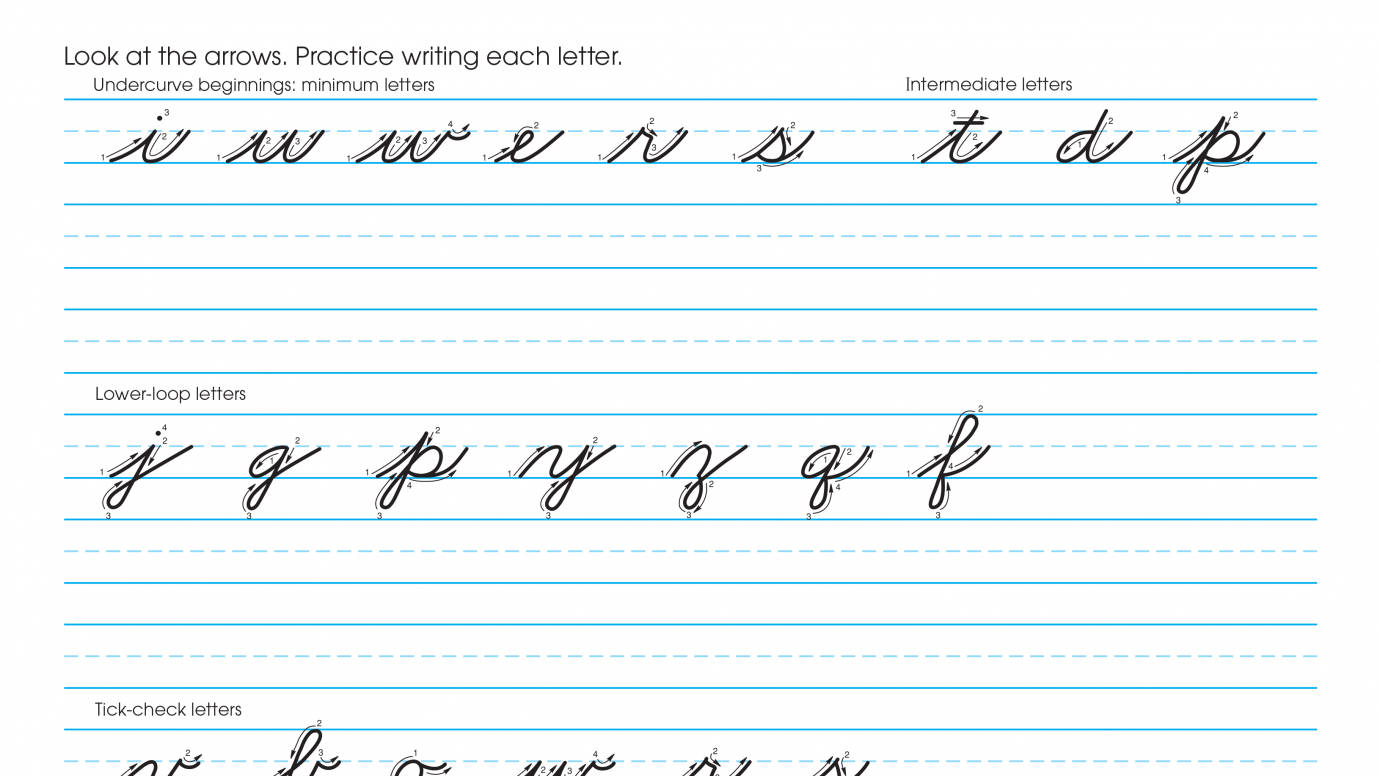 Look at the arrows. Practice writing each letter.
Undercurve beginnings: minimum letters Intermediate letters
i u w e r s t d p
Lower-loop letters
j g p y z q f
Tick-check letters
v b o w r s